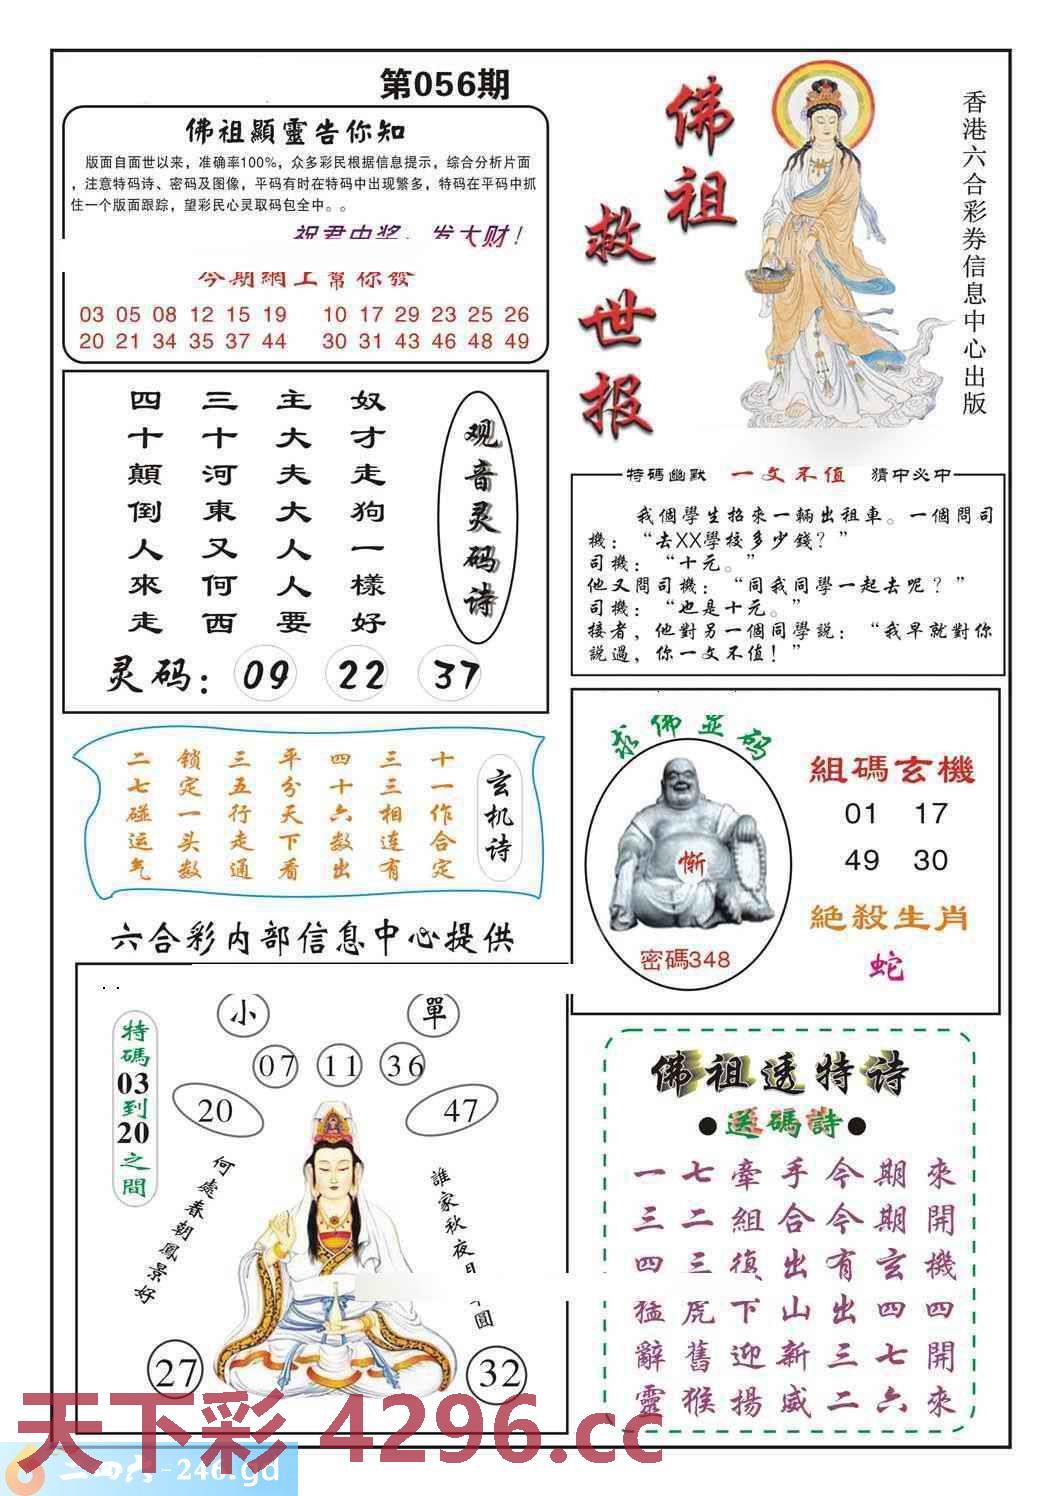 第056期
佛祖顯靈告你知
版面自面世以来，准确率100%，众多彩民根据信息提示，综合分析片面
，注意特码诗、密码及图像，平码有时在特码中出现繁多，特码在平码中抓
住一个版面跟踪，望彩民心灵取码包全中。。
祝君中奖，发大财！
今期網上幫你發
03 05 08 12 15 19 10 17 29 23 25 26
20 21 34 35 37 44 30 31 43 46 48 49
佛祖
救世报
香港六合彩券信息中心出版
观音灵码诗
奴才走狗一樣好
主大夫大人人要
三十河東又何西
四十顛倒人來走
灵码：09 22 37
特碼幽默 一文不值 猜中必中
我個學生招來一輛出租車。一個問司
機：“去XX學校多少錢？”
司機：“十元。”
他又問司機：“同我同學一起去呢？”
司機：“也是十元。”
接者，他對另一個同學説：“我早就對你
説過，你一文不值！”
玄机诗
十一作合定
三三相连有
四十六数出
平分天下看
三五行走通
锁定一头数
二七碰运气
求佛显码
惭
密碼348
組碼玄機
01 17
49 30
絕殺生肖
蛇
六合彩内部信息中心提供
特碼03到20之間
小 單
07 11 36
20 47
何處春朝鳳景好
誰家秋夜月
圓
27 32
佛祖透特诗
●送碼詩●
一七牽手今期來
三二組合今期開
四三復出有玄機
猛虎下山出四四
辭舊迎新三七開
靈猴揚威二六來
天下彩 4296.cc
二四六-246.gd